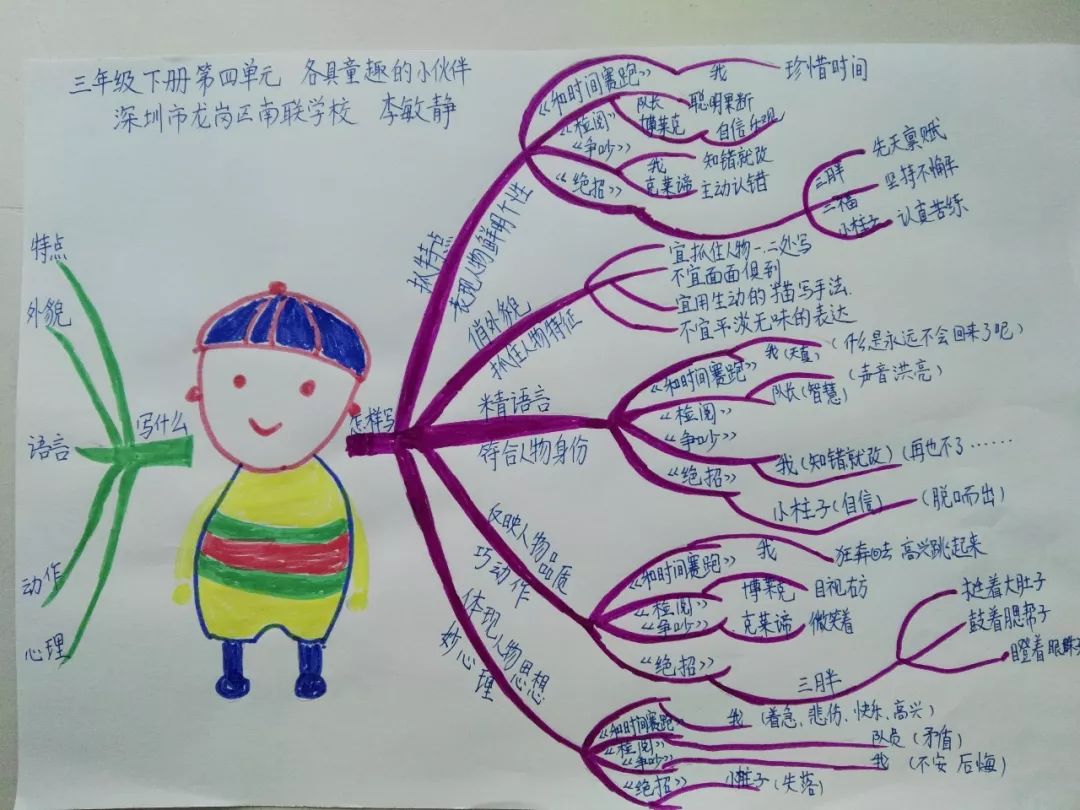 三年级下册第四单元 各具童趣的小伙伴
深圳市龙岗区南联学校 李敏静
写什么
特点
外貌
语言
动作
心理
怎样写
抓特点
表现人物鲜明个性
《和时间赛跑》 我 珍惜时间
《检阅》 队长 聪明果断
博莱克 自信乐观
《争吵》 我 知错就改
克莱谛 主动认错
《绝招》 三胖 先天禀赋
二福 坚持不懈
小柱子 认真苦练
俏外貌
抓住人物特征
宜抓住人物一、二处写
不宜面面俱到
宜用生动的描写手法.
不宜平淡无味的表达
精语言
符合人物身份
《和时间赛跑》 我(天真) (什么是永远不会回来了呢)
《检阅》 队长(智慧) (声音洪亮)
《争吵》 我(知错就改) (再也不了……
《绝招》 小柱子(自信) (脱口而出)
巧动作
反映人物品质
《和时间赛跑》 我 狂奔回去 高兴跳起来
《检阅》 博莱克 目视右方
《争吵》 克莱谛 微笑着
《绝招》 三胖 挺着大肚子
鼓着腮帮子
瞪着眼睛
妙心理
体现人物思想
《和时间赛跑》 我 (着急、悲伤、快乐、高兴)
《检阅》 队员 (矛盾)
《争吵》 我 (不安 后悔)
《绝招》 小柱子 (失落)